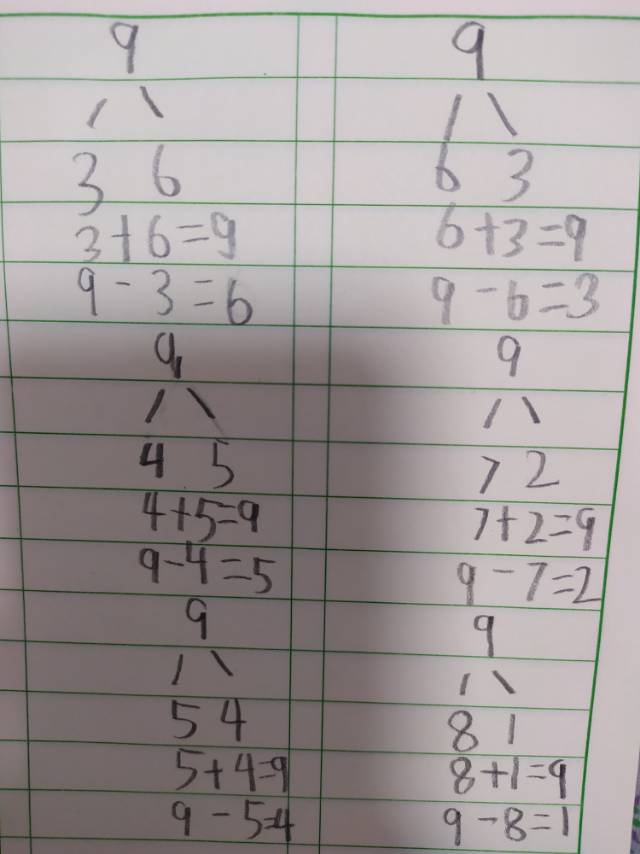 9
/ \
3 6
3+6=9
9-3=6
9
/ \
4 5
4+5=9
9-4=5
9
/ \
5 4
5+4=9
9-5=4
9
/ \
6 3
6+3=9
9-6=3
9
/ \
7 2
7+2=9
9-7=2
9
/ \
8 1
8+1=9
9-8=1